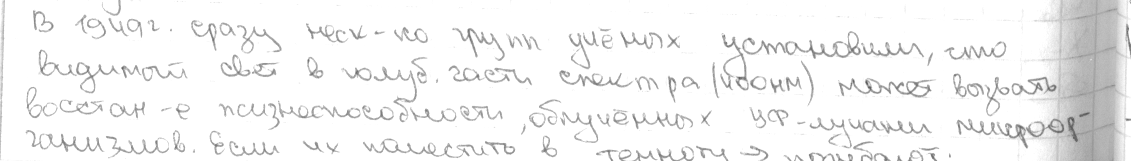 В 1949г. сразу неск-ко групп учёных установили, что
видимый свет в голуб. части спектра (400нм) может вызвать
восстан-е жизнеспособности, облучённых УФ-лучами микроор-
ганизмов. Если их поместить в темноту → погибают.